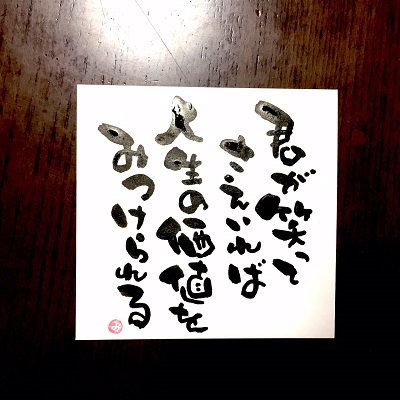 君が笑って
さえいれば
人生の価値を
みつけられる
み